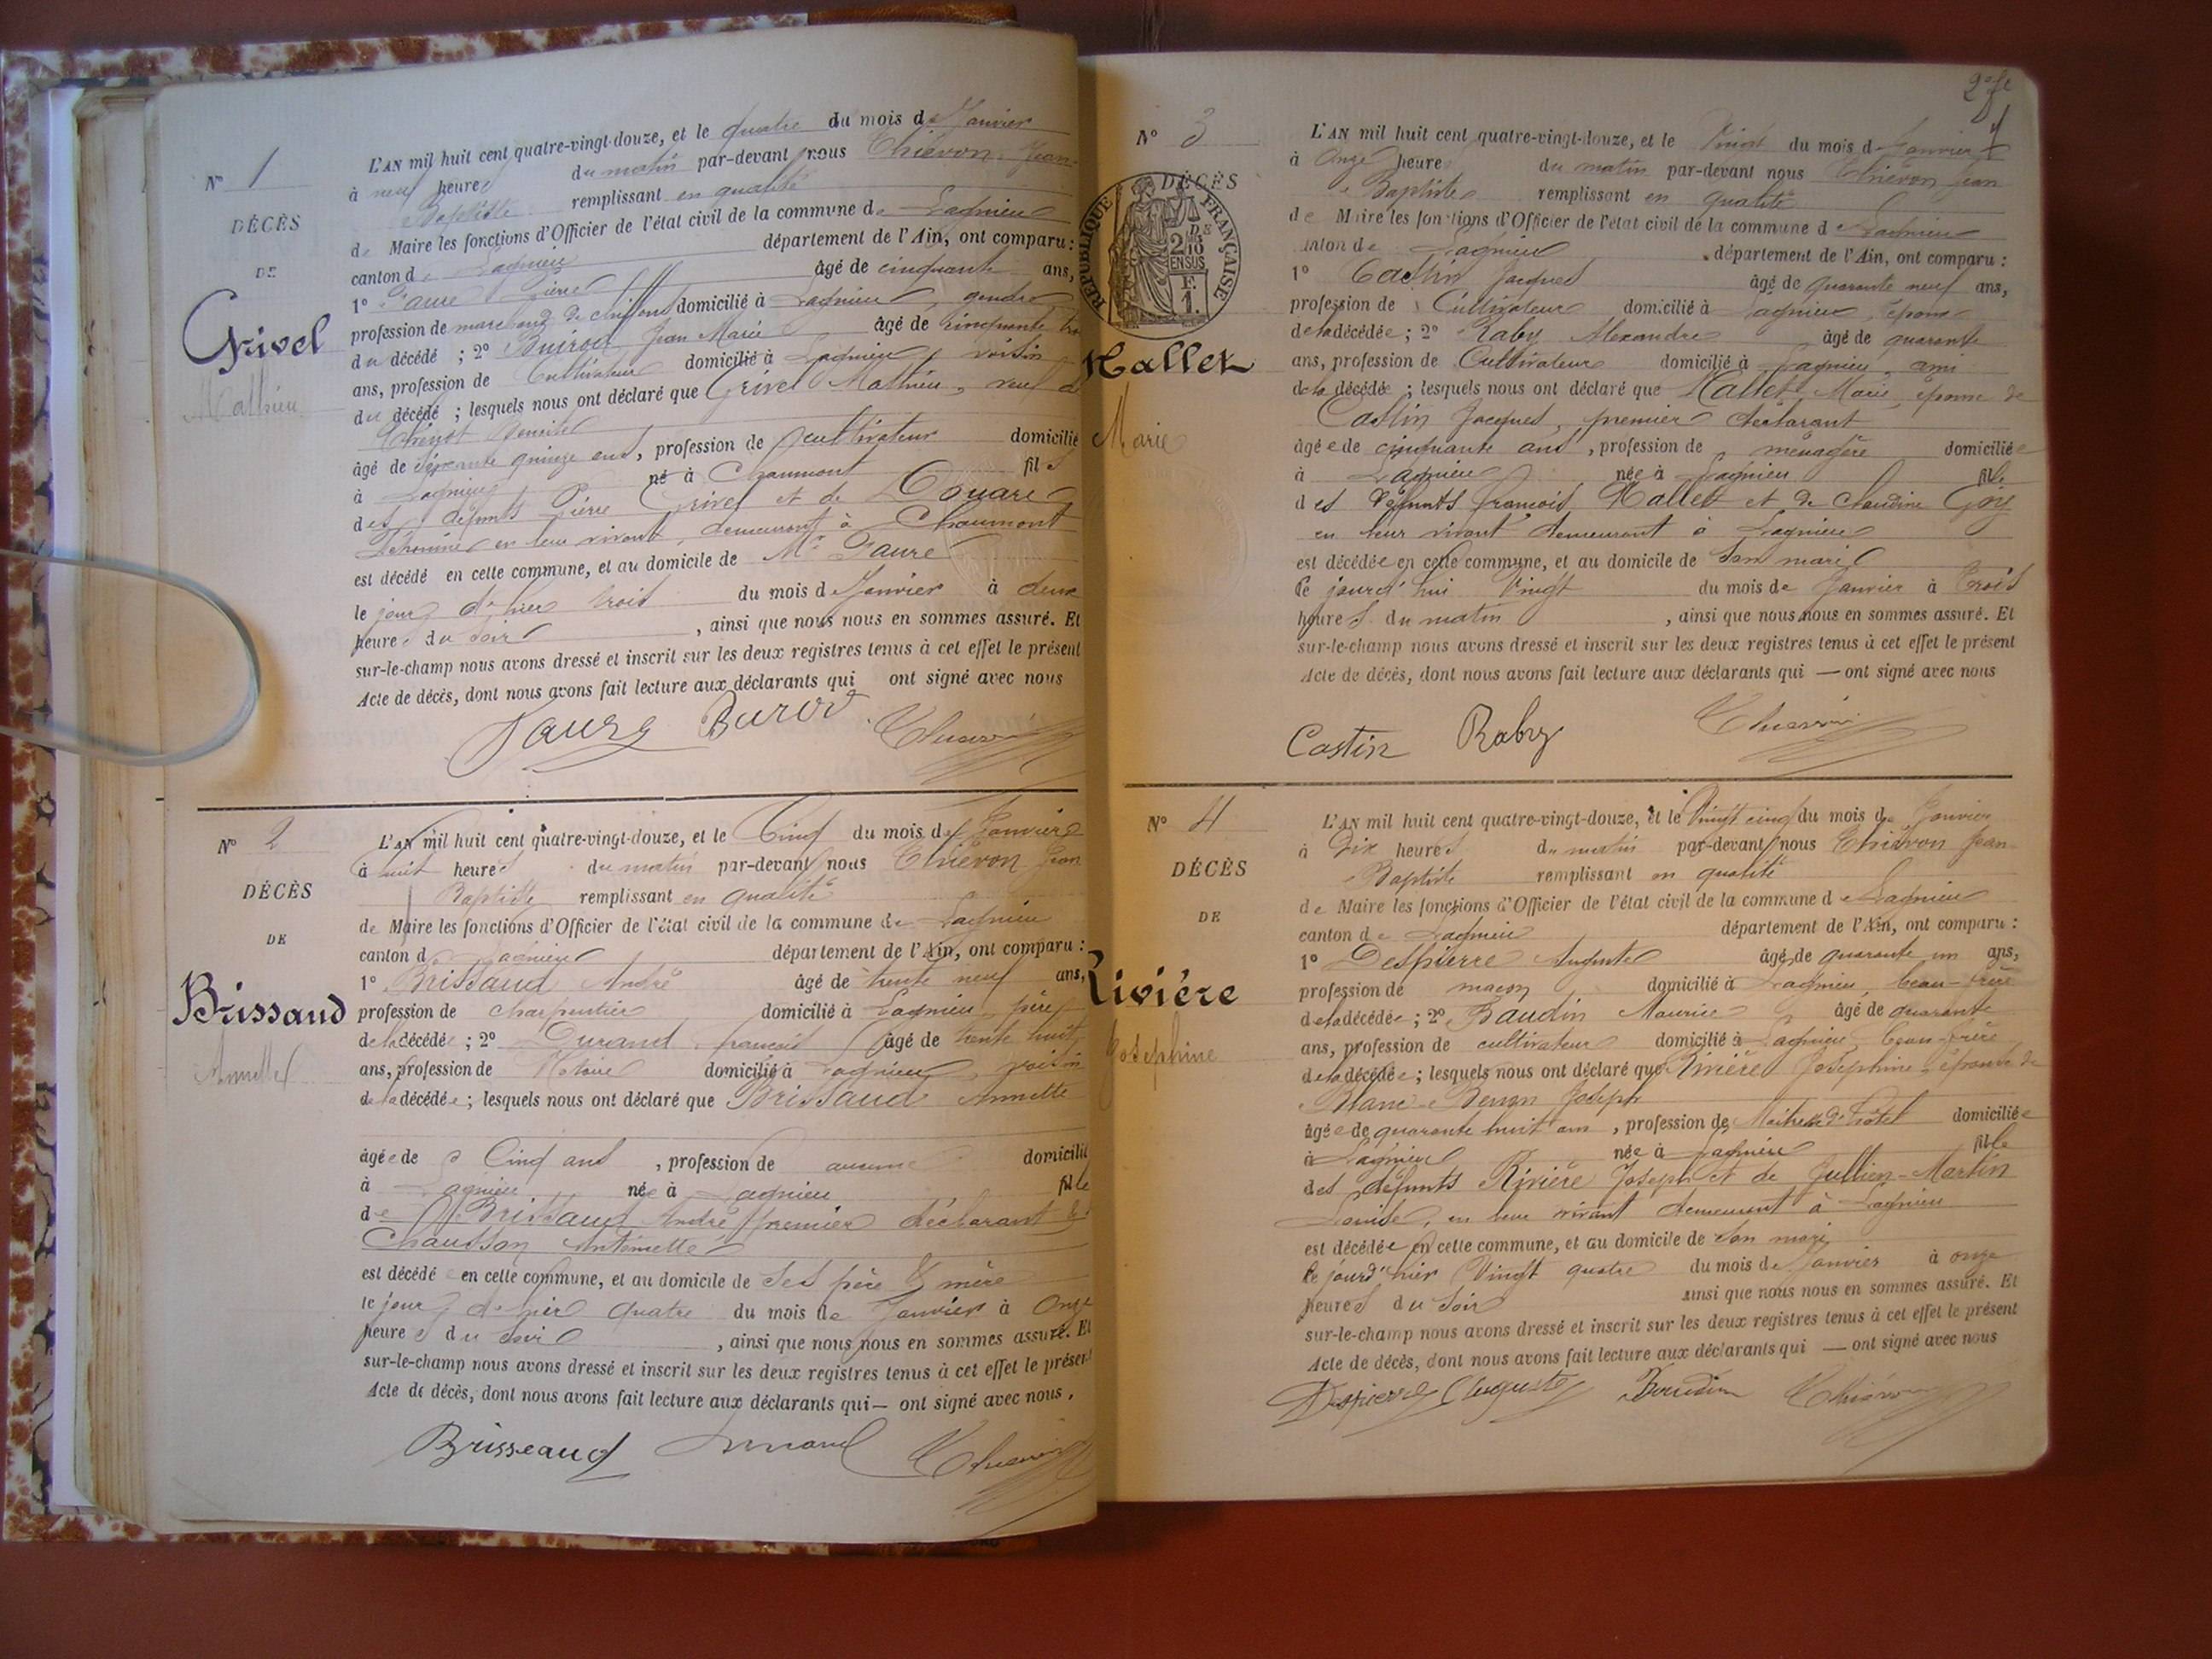 N° 1
DÉCÈS
DE
Grivel
Mathieu
L'AN mil huit cent quatre-vingt-douze, et le quatre du mois de Janvier
à neuf heures du matin par-devant nous Thiévon Jean-
Baptiste remplissant en qualité
de Maire les fonctions d'Officier de l'état civil de la commune de Lagnieu
canton de Lagnieu département de l'Ain, ont comparu :
1° Faure Pierre âgé de cinquante ans,
profession de marchand de chiffons domicilié à Lagnieu, gendre
du décédé ; 2° Buirod Jean Marie âgé de cinquante
ans, profession de Cultivateur domicilié à Lagnieu, voisin
du décédé ; lesquels nous ont déclaré que Grivel Mathieu, veuf de
âgé de Soixante quinze ans, profession de cultivateur domicilié
à Lagnieu né à Chaumont fils
des défunts Pierre Grivel et de Douare
en leur vivant, demeurant à Chaumont
est décédé en cette commune, et au domicile de Mr Faure
le jour d'hier trois du mois de Janvier à deux
heures du soir, ainsi que nous nous en sommes assuré. Et
sur-le-champ nous avons dressé et inscrit sur les deux registres tenus à cet effet le présent
Acte de décès, dont nous avons fait lecture aux déclarants qui ont signé avec nous
Faure Burod Thiévon
N° 2
DÉCÈS
DE
Brissaud
Annette
L'AN mil huit cent quatre-vingt-douze, et le Cinq du mois de Janvier
à huit heures du matin par-devant nous Thiévon Jean
Baptiste remplissant en qualité
de Maire les fonctions d'Officier de l'état civil de la commune de Lagnieu
canton de Lagnieu département de l'Ain, ont comparu :
1° Brissaud André âgé de trente neuf ans,
profession de charpentier domicilié à Lagnieu, père
de la décédée ; 2° Durand françois âgé de trente huit
ans, profession de Notaire domicilié à Lagnieu, voisin
de la décédée ; lesquels nous ont déclaré que Brissaud Annette
âgée de Cinq ans, profession de aucune domicilié
à Lagnieu née à Lagnieu fille
de Brissaud André premier déclarant &
Chausson Antoinette
est décédée en cette commune, et au domicile de ses père & mère
le jour d'hier quatre du mois de Janvier à Onze
heures du soir, ainsi que nous nous en sommes assuré. Et
sur-le-champ nous avons dressé et inscrit sur les deux registres tenus à cet effet le présent
Acte de décès, dont nous avons fait lecture aux déclarants qui — ont signé avec nous.
Brisseaud Durand Thiévon
N° 3
DÉCÈS
RÉPUBLIQUE FRANÇAISE
2/10 EN SUS
F. 1.
Mallet
Marie
L'AN mil huit cent quatre-vingt-douze, et le Vingt du mois de Janvier
à Onze heure du matin par-devant nous Thiévon Jean
Baptiste remplissant en qualité
de Maire les fonctions d'Officier de l'état civil de la commune de Lagnieu
canton de Lagnieu département de l'Ain, ont comparu :
1° Castin Jacques âgé de quarante neuf ans,
profession de Cultivateur domicilié à Lagnieu, époux
de la décédée ; 2° Raby Alexandre âgé de quarante
ans, profession de Cultivateur domicilié à Lagnieu, ami
de la décédée ; lesquels nous ont déclaré que Mallet Marie, épouse de
Castin Jacques, premier déclarant
âgée de cinquante ans, profession de ménagère domiciliée
à Lagnieu née à Lagnieu fille
des défunts françois Mallet et de Claudine Goy
en leur vivant demeurant à Lagnieu
est décédée en cette commune, et au domicile de son mari
ce jourd'hui Vingt du mois de Janvier à Trois
heures du matin, ainsi que nous nous en sommes assuré. Et
sur-le-champ nous avons dressé et inscrit sur les deux registres tenus à cet effet le présent
Acte de décès, dont nous avons fait lecture aux déclarants qui — ont signé avec nous
Castin Raby Thiévon
N° 4
DÉCÈS
DE
Rivière
Joséphine
L'AN mil huit cent quatre-vingt-douze, et le Vingt cinq du mois de Janvier
à Dix heures du matin par-devant nous Thiévon Jean-
Baptiste remplissant en qualité
de Maire les fonctions d'Officier de l'état civil de la commune de Lagnieu
canton de Lagnieu département de l'Ain, ont comparu :
1° Despierre Auguste âgé de quarante un ans,
profession de maçon domicilié à Lagnieu, beau-frère
de la décédée ; 2° Baudin Maurice âgé de quarante
ans, profession de cultivateur domicilié à Lagnieu, beau-frère
de la décédée ; lesquels nous ont déclaré que Rivière Joséphine, épouse de
Blanc Joseph
âgée de quarante huit ans, profession de Maîtresse d'hôtel domiciliée
à Lagnieu née à Lagnieu fille
des défunts Rivière Joseph et de Jullien-Martin
Louise, en leur vivant demeurant à Lagnieu
est décédée en cette commune, et au domicile de son mari
le jourd'hier Vingt quatre du mois de Janvier à onze
heures du Soir ainsi que nous nous en sommes assuré. Et
sur-le-champ nous avons dressé et inscrit sur les deux registres tenus à cet effet le présent
Acte de décès, dont nous avons fait lecture aux déclarants qui — ont signé avec nous
Despierre Auguste Baudin Thiévon